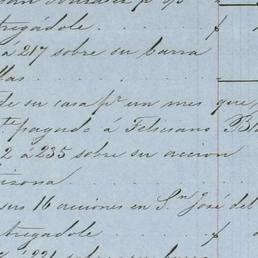 tregádole
á 217 sobre su barra
llas
de su casa pr un mes que,
te pagado á Feliciano
2 á 235 sobre su accion
irona
sus 16 acciones en Sn José del
tregadole
á 221 sobre su barra